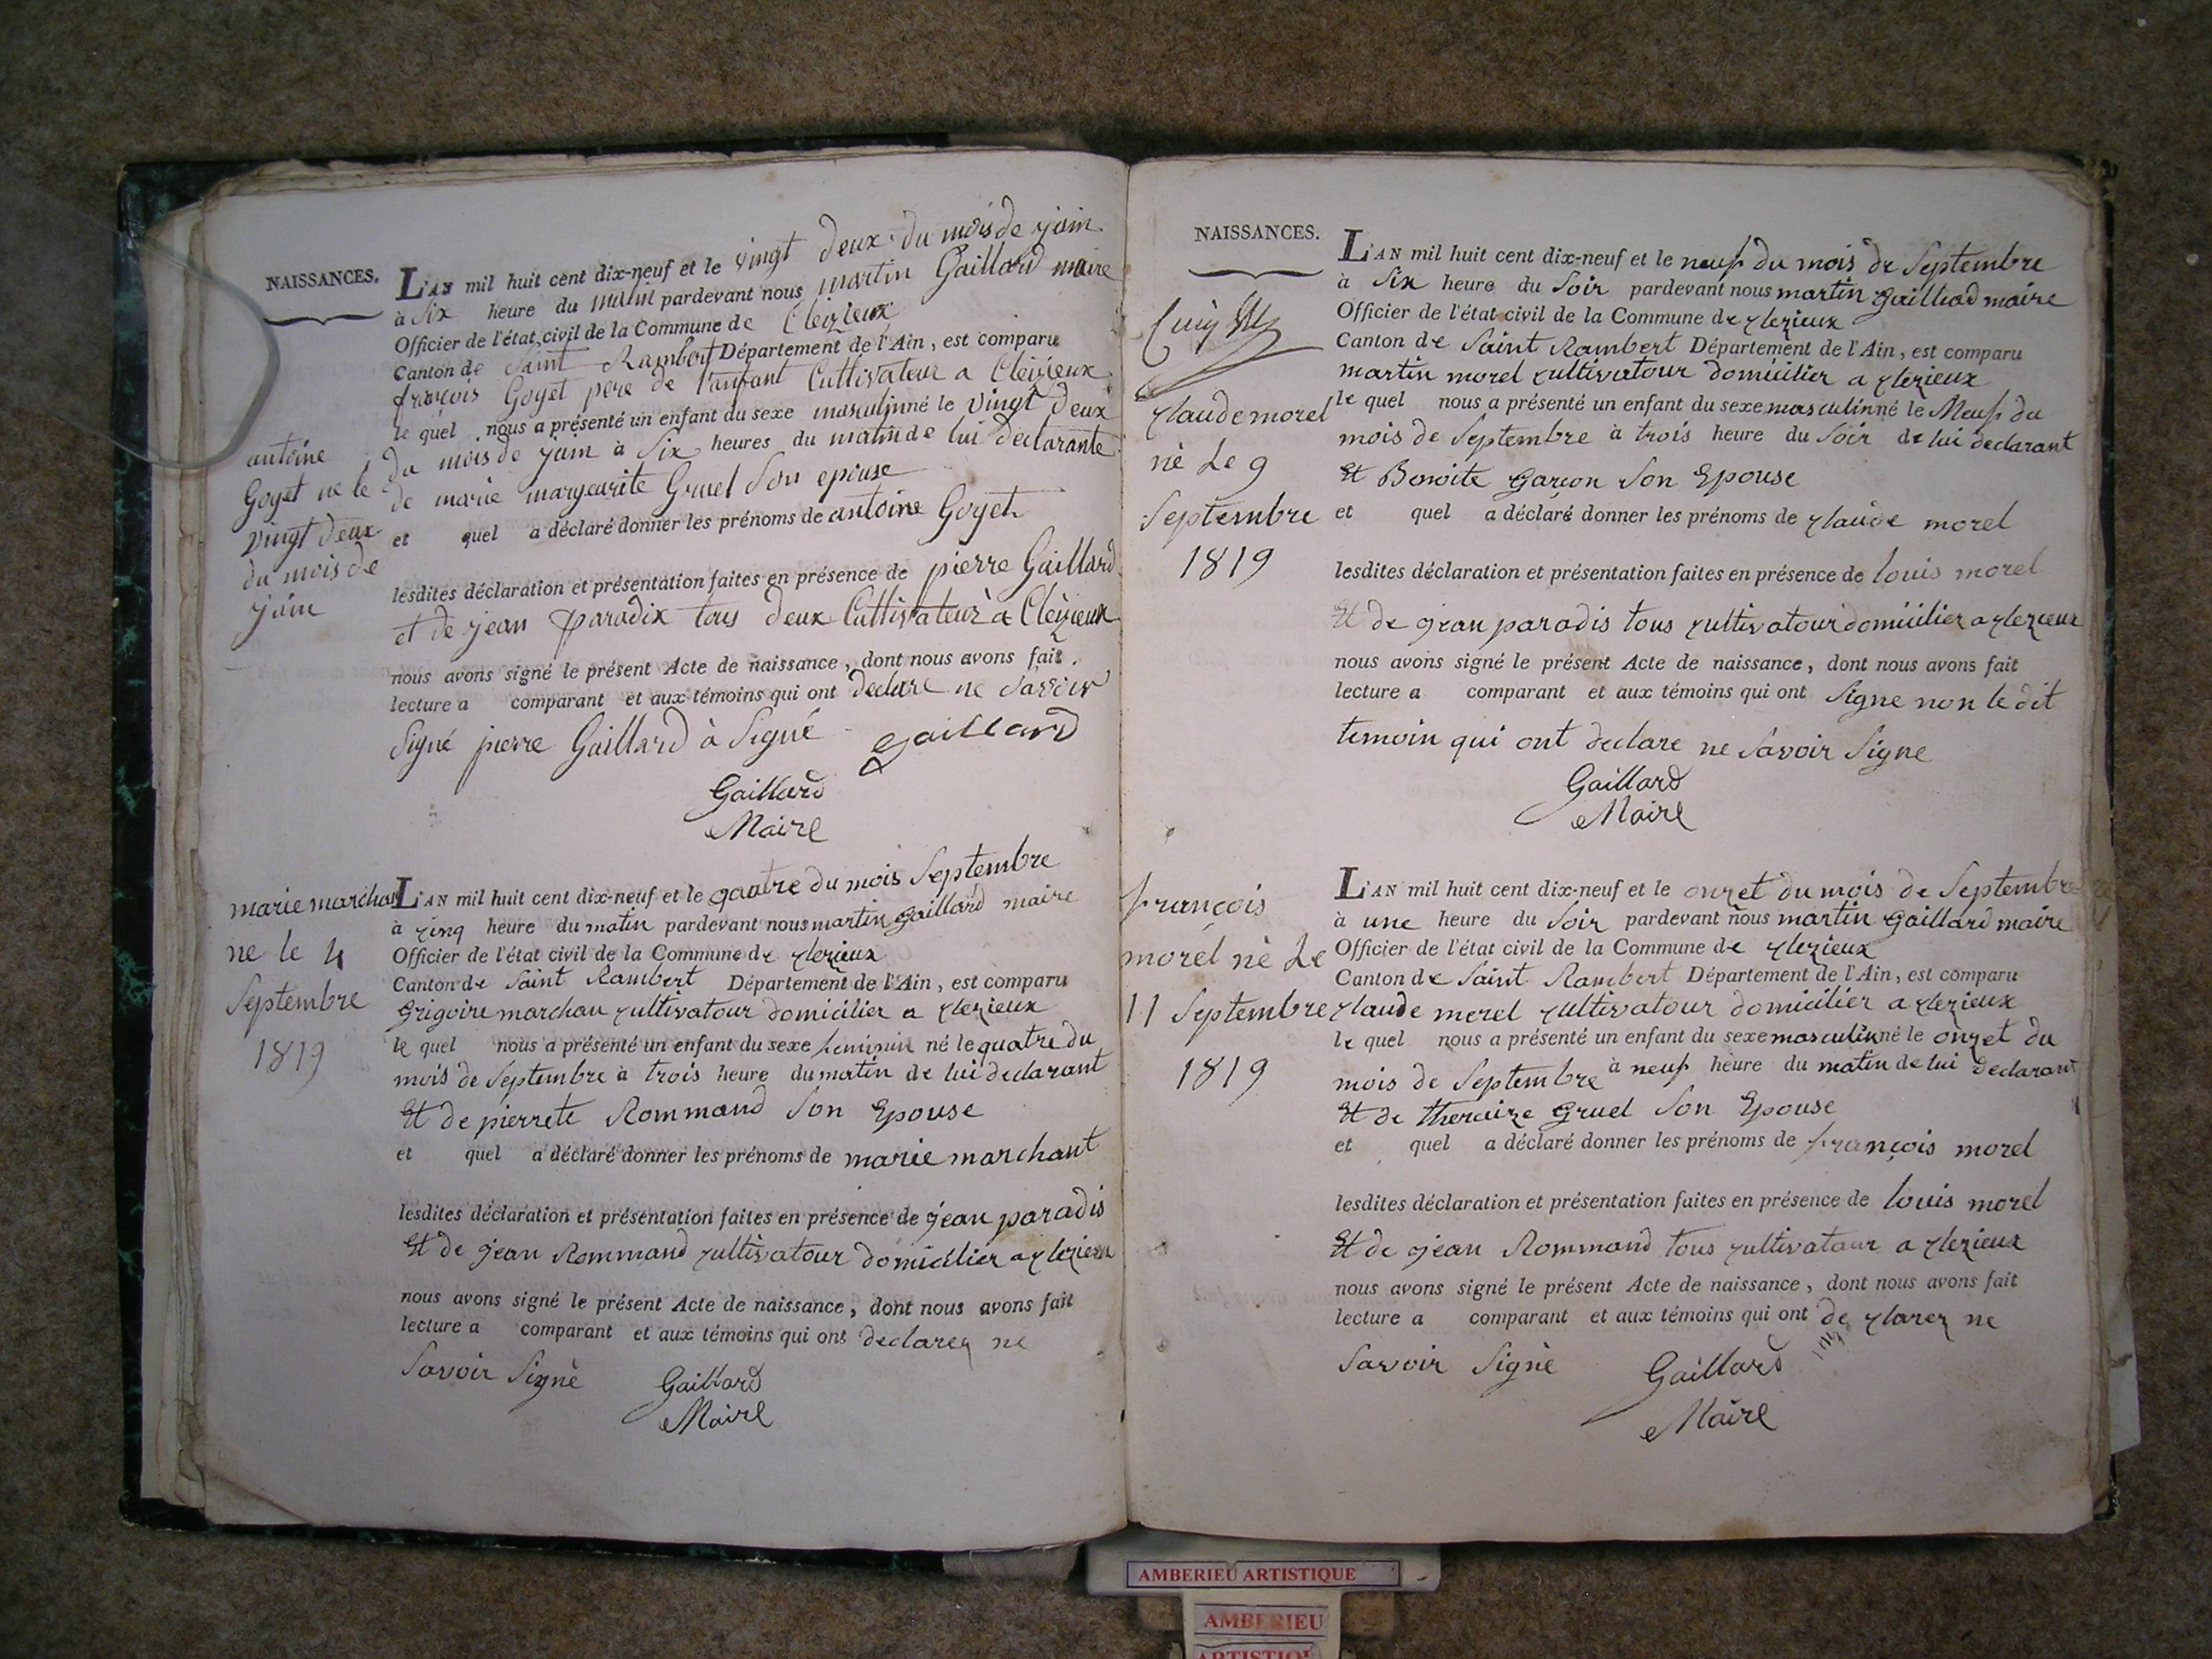 NAISSANCES.
L'AN mil huit cent dix-neuf et le vingt deux du mois de juin
à Six heure du matin pardevant nous martin Gaillard maire
Officier de l'état civil de la Commune de Cleizieux
Canton de Saint Rambert Département de l'Ain, est comparu
françois Goyet pere de l'anfant Cultivateur a Cleizieux
le quel nous a présenté un enfant du sexe masculin né le vingt deux
du mois de juin à Six heures du matin de lui declarante
de marie margeurite Gruel Son epouse
et quel a déclaré donner les prénoms de antoine Goyet
lesdites déclaration et présentation faites en présence de pierre Gaillard
et de jean paradix tous deux Cultivateur a Cleizieux
nous avons signé le présent Acte de naissance, dont nous avons fait
lecture a comparant et aux témoins qui ont declare ne savoir
Signé pierre Gaillard à Signé Gaillard
Gaillard
Maire
antoine
Goyet ne le
vingt deux
du mois de
juin
marie marchan
ne le 4
Septembre
1819
L'AN mil huit cent dix-neuf et le qautre du mois Septembre
à cinq heure du matin pardevant nous martin gaillard maire
Officier de l'état civil de la Commune de clezieux
Canton de Saint Rambert Département de l'Ain, est comparu
Grigoire marchan cultivatour domicilier a clezieux
le quel nous a présenté un enfant du sexe feminin né le quatre du
mois de Septembre à trois heure du matin de lui declarant
Et de pierrete Rommand Son Epouse
et quel a déclaré donner les prénoms de marie marchant
lesdites déclaration et présentation faites en présence de jean paradis
Et de jean Rommand cultivatour domicilier a clezieux
nous avons signé le présent Acte de naissance, dont nous avons fait
lecture a comparant et aux témoins qui ont declarez ne
Savoir Signè Gaillard
Maire
NAISSANCES.
claude morel
nè Le 9
Septembre
1819
L'AN mil huit cent dix-neuf et le neuf du mois de Septembre
à Six heure du Soir pardevant nous martin gailliad maire
Officier de l'état civil de la Commune de clezieux
Canton de Saint Rambert Département de l'Ain, est comparu
martin morel cultivatour domicilier a clezieux
le quel nous a présenté un enfant du sexe masculin né le Neuf du
mois de Septembre à trois heure du Soir de lui declarant
Et Benoite garcon Son Epouse
et quel a déclaré donner les prénoms de claude morel
lesdites déclaration et présentation faites en présence de louis morel
Et de jean paradis tous cultivatour domicilier a clezieux
nous avons signé le présent Acte de naissance, dont nous avons fait
lecture a comparant et aux témoins qui ont Signe non le dit
temoin qui ont declare ne Savoir Signe
Gaillard
Maire
françois
morel nè Le
11 Septembre
1819
L'AN mil huit cent dix-neuf et le onzet du mois de Septembre
à une heure du Soir pardevant nous martin gaillard maire
Officier de l'état civil de la Commune de clezieux
Canton de Saint Rambert Département de l'Ain, est comparu
claude morel cultivatour domicilier a clezieux
le quel nous a présenté un enfant du sexe masculin né le onzet du
mois de Septembre à neuf heure du matin de lui declarant
Et de theraize gruel Son Epouse
et quel a déclaré donner les prénoms de françois morel
lesdites déclaration et présentation faites en présence de louis morel
Et de jean Rommand tous cultivatour a clezieux
nous avons signé le présent Acte de naissance, dont nous avons fait
lecture a comparant et aux témoins qui ont de clarez ne
Savoir Signè Gaillard
Maire
AMBERIEU ARTISTIQUE
AMBERIEU
ARTISTIQUE